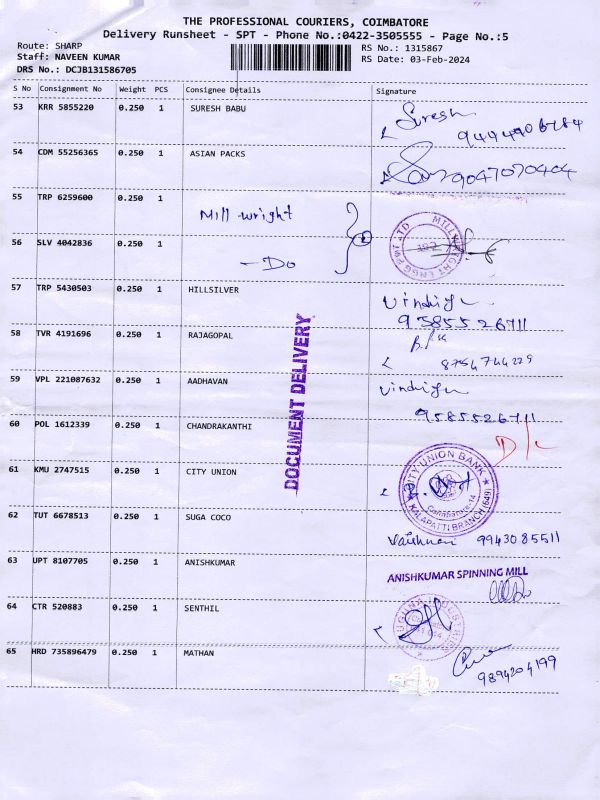 THE PROFESSIONAL COURIERS, COIMBATORE
Delivery Runsheet - SPT - Phone No.:0422-3505555 - Page No.:5
Route: SHARP
Staff: NAVEEN KUMAR
DRS No.: DCJB131586705
RS No.: 1315867
RS Date: 03-Feb-2024
S No Consignment No Weight PCS Consignee Details Signature
53 KRR 5855220 0.250 1 SURESH BABU Suresh
54 CDM 55256365 0.250 1 ASIAN PACKS 9047070404
55 TRP 6259600 0.250 1 Mill wright
56 SLV 4042836 0.250 1 - Do
57 TRP 5430503 0.250 1 HILLSILVER
9585526711
58 TVR 4191696 0.250 1 RAJAGOPAL
8754744229
59 VPL 221087632 0.250 1 AADHAVAN
9585526711
60 POL 1612339 0.250 1 CHANDRAKANTHI D/L
61 KMU 2747515 0.250 1 CITY UNION
CITY UNION BANK
Coimbatore-14
KALAPATTI BRANCH (649)
62 TUT 6678513 0.250 1 SUGA COCO Vaishnavi 9943085511
63 UPT 8107705 0.250 1 ANISHKUMAR ANISHKUMAR SPINNING MILL
64 CTR 520883 0.250 1 SENTHIL
65 HRD 735896479 0.250 1 MATHAN
9894204199
DOCUMENT DELIVERY